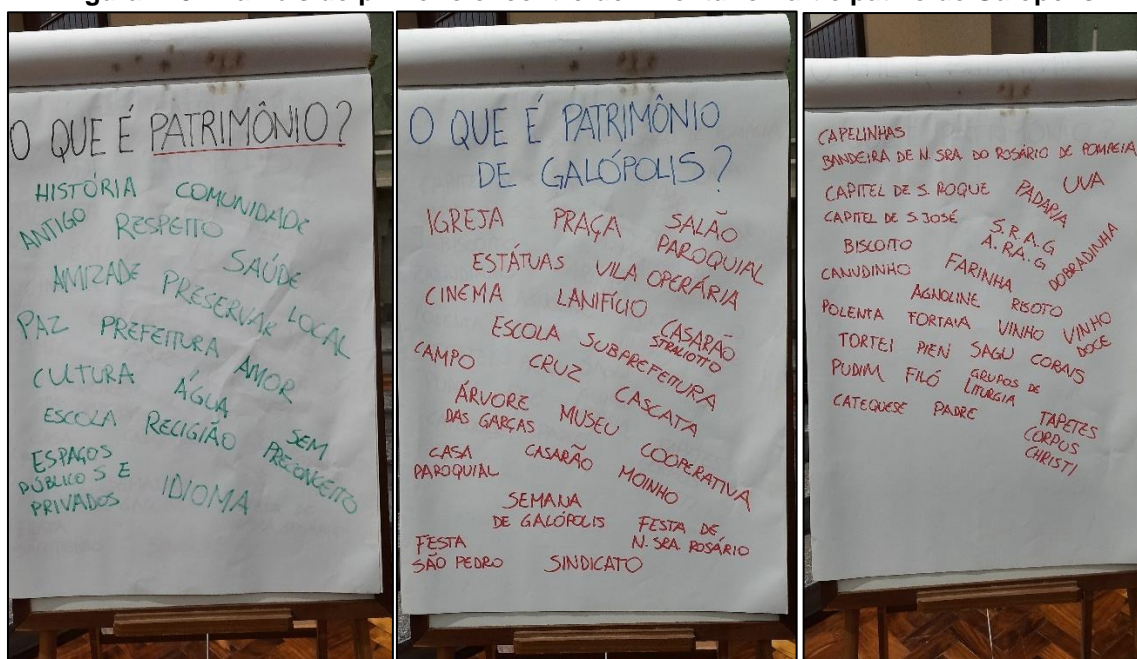 O QUE É PATRIMÔNIO?
HISTÓRIA COMUNIDADE
ANTIGO RESPEITO
AMIZADE PRESERVAR SAÚDE LOCAL
PAZ PREFEITURA AMOR
CULTURA ÁGUA
ESCOLA RELIGIÃO SEM PRECONCEITO
ESPAÇOS
PÚBLICOS E
PRIVADOS
IDIOMA
O QUE É PATRIMÔNIO
DE GALÓPOLIS?
IGREJA PRAÇA SALÃO
PAROQUIAL
ESTÁTUAS VILA OPERÁRIA
CINEMA LANIFÍCIO CASARÃO
STRALIOTTO
ESCOLA SUBPREFEITURA
CAMPO CRUZ CASCATA
ÁRVORE
DAS GARÇAS
MUSEU COOPERATIVA
CASA
PAROQUIAL
CASARÃO MOINHO
SEMANA
DE GALÓPOLIS
FESTA DE
N. SRA. ROSÁRIO
FESTA
SÃO PEDRO
SINDICATO
CAPELINHAS
BANDEIRA DE N. SRA DO ROSÁRIO DE POMPEIA
CAPITEL DE S. ROQUE PADARIA UVA
CAPITEL DE S. JOSÉ S.R.A.G
A.RA.G
BISCOITO FARINHA DOBRADINHA
CANUDINHO
AGNOLINE RISOTO
POLENTA FORTAIA VINHO VINHO
DOCE
TORTEI PIEN SAGU CORAIS
PUDIM FILÓ GRUPOS DE
LITURGIA
CATEQUESE PADRE TAPETES
CORPUS
CHRISTI